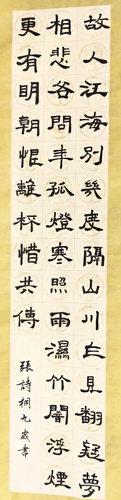 故人江海別幾度隔山川乍見翻疑夢
相悲各問年孤燈寒照雨濕竹闇浮煙
更有明朝恨離杯惜共傳
張詩桐九歲書